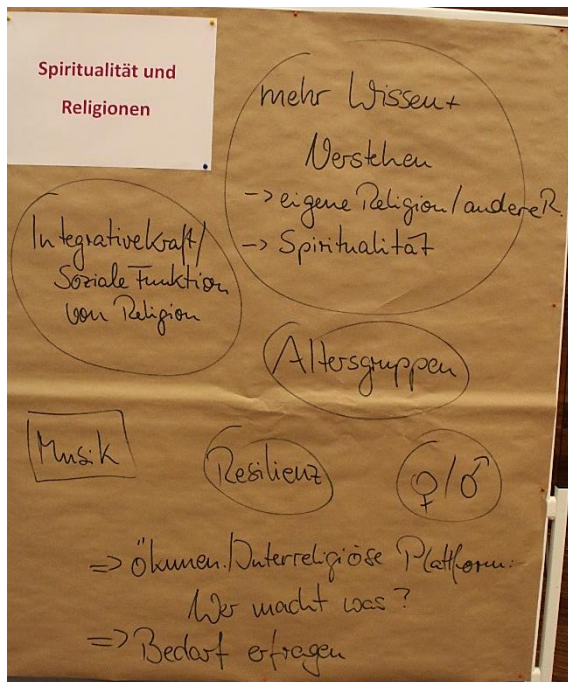 Spiritualität und
Religionen
mehr Wissen +
Verstehen
-> eigene Religion / andere R.
-> Spiritualität
Integrative Kraft /
Soziale Funktion
von Religion
Altersgruppen
Musik
Resilienz
♀/♂
=> Ökumen./Interreligiöse Plattform:
Wer macht was?
=> Bedarf erfragen